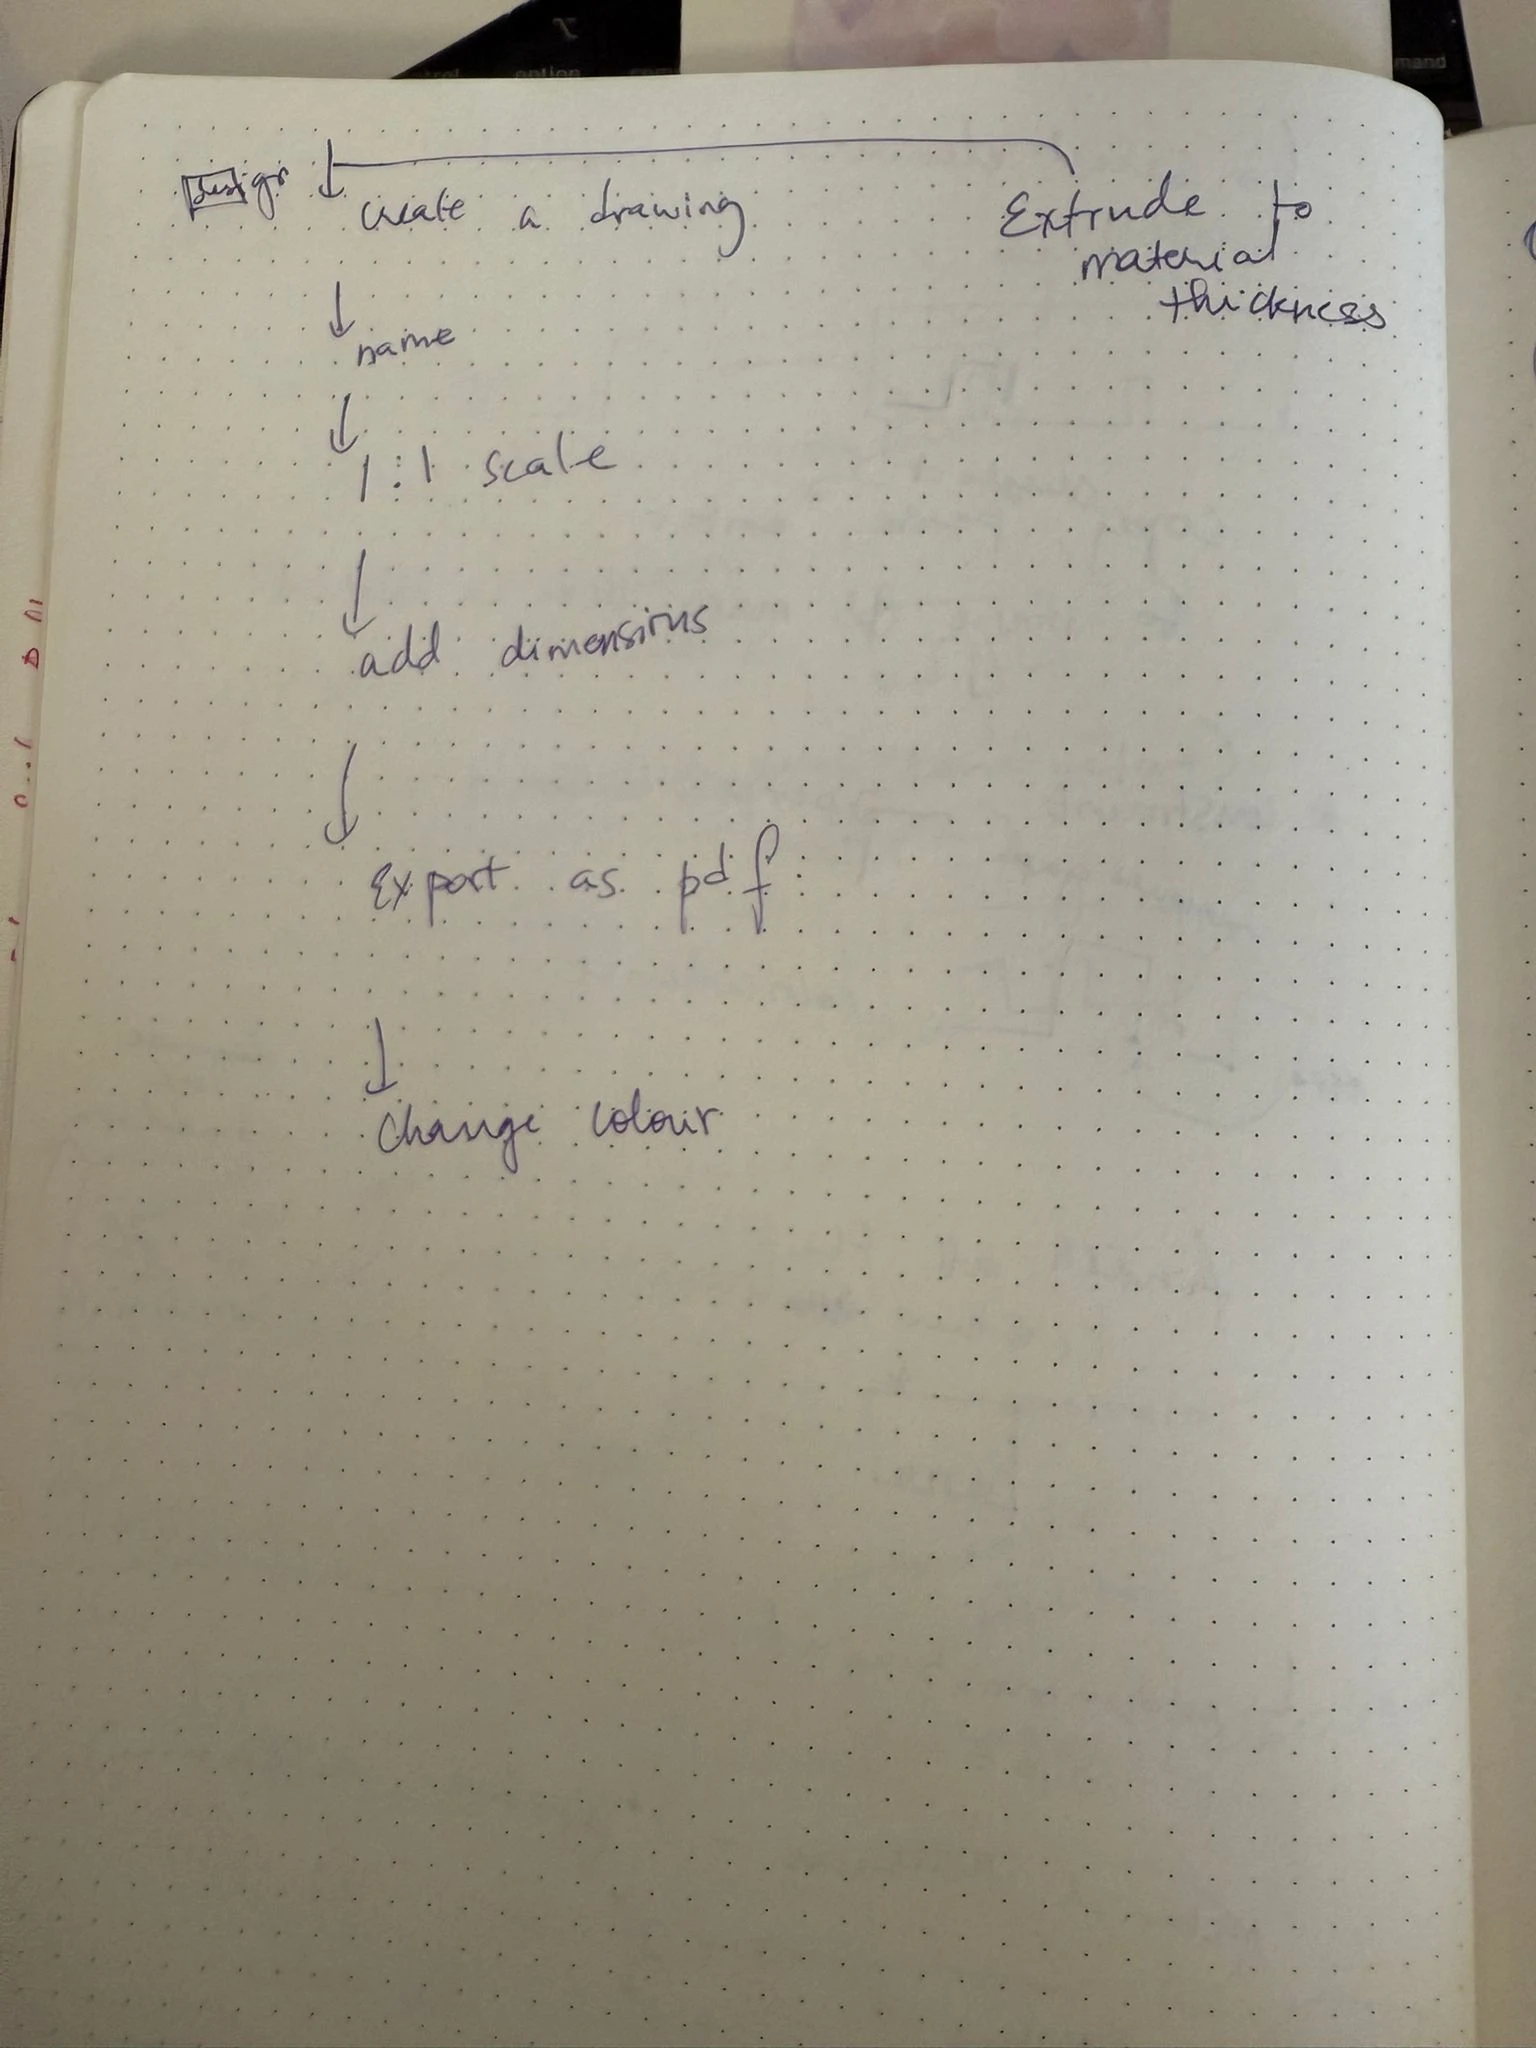 option
mand
Design
create a drawing
Extrude to
material
thickness
name
1:1 scale
add dimensions
Export as pdf
Change colour